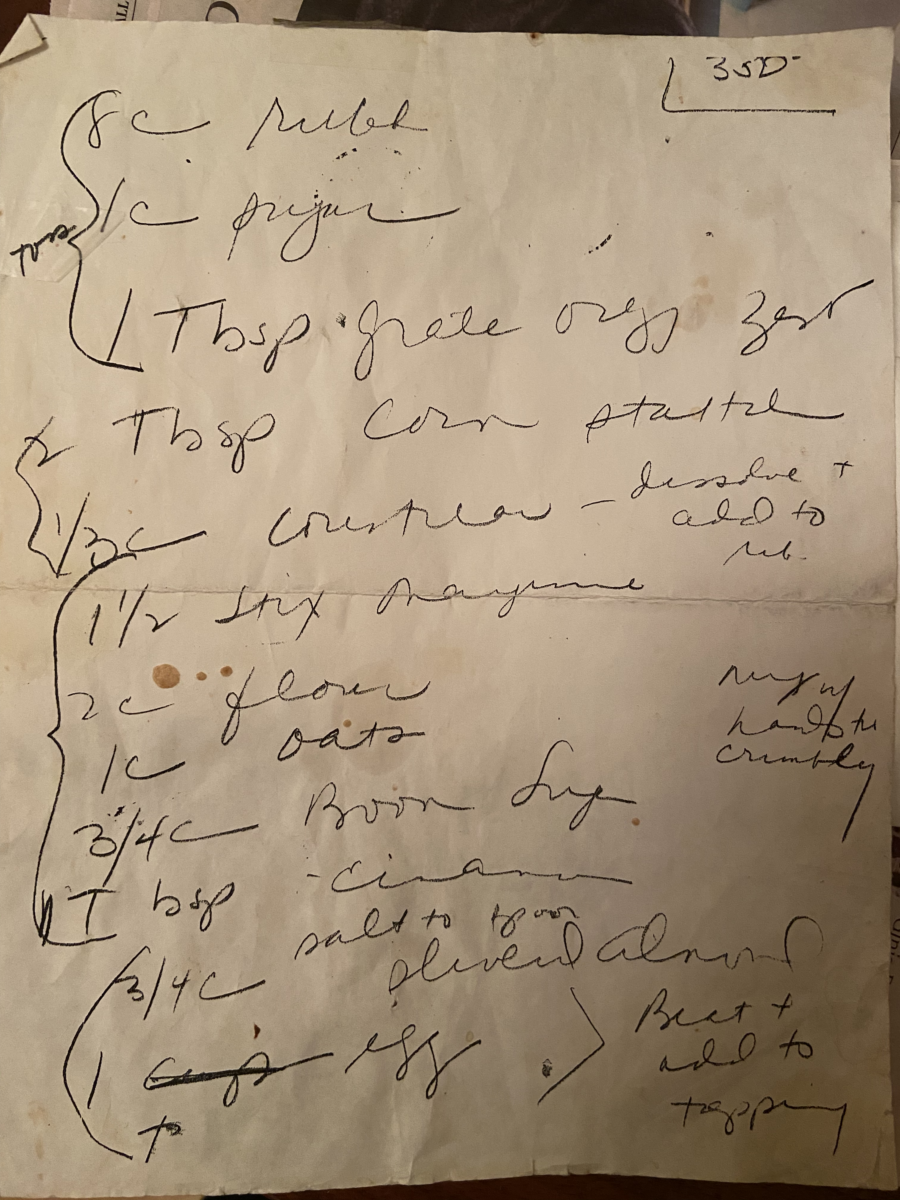 350
8c rubb
1c sugar
salt
1 Tbsp grate orng zest
2 Tbsp Corn starch
1/3 c - dissolve +
add to
rub.
1 1/2 Stix margarine
2c flour
1c oats
3/4c Brown Sug
1 Tbsp cinamon
w/
hands til
crumbly
salt to
3/4c slivered almond
1 egg
Beat +
add to
topping